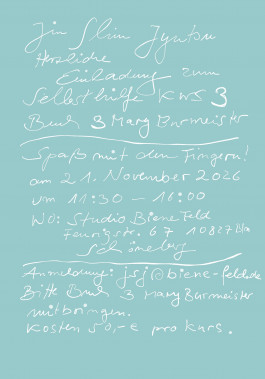 Jin Shin Jyutsu
Herzliche
Einladung zum
Selbsthilfe Kurs 3
Buch 3 Mary Burmeister
Spaß mit den Fingern!
am 21. November 2026
um 11:30 - 16:00
Wo: Studio Biene Feld
Feurigstr. 67 10827 Bln
Schöneberg
Anmeldung: jsj@biene-feld.de
Bitte Buch 3 Mary Burmeister
mitbringen.
Kosten 50,-€ pro Kurs.